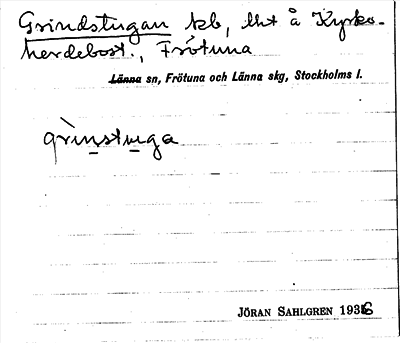 Grindstugan tb, lht å Kyrko-
herdebost., Frötuna
Länna sn, Frötuna och Länna skg, Stockholms l.
grìnstuga
JÖRAN SAHLGREN 1936